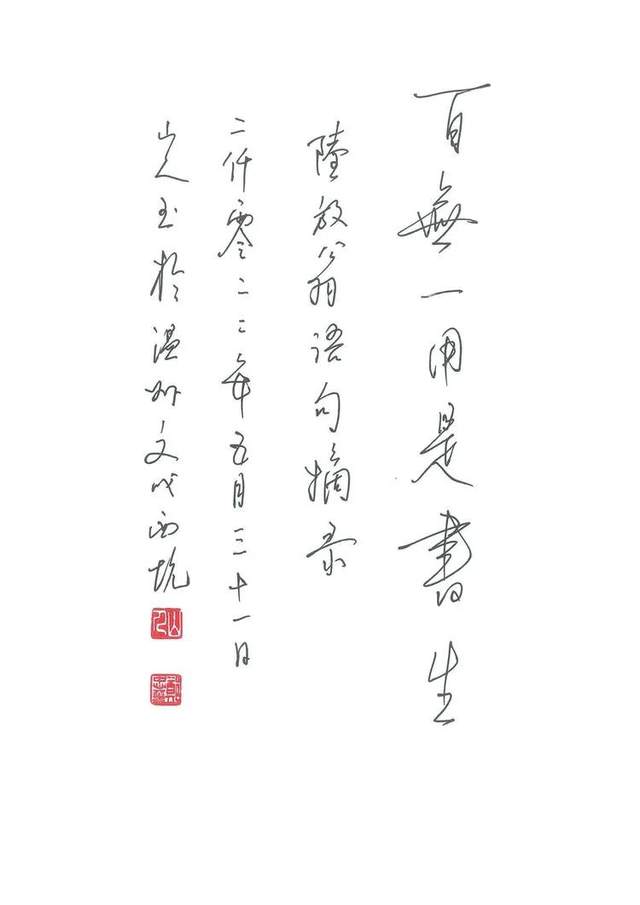 百無一用是書生
陸放翁语句摘录
二仟零二二年五月三十一日
山人玉於温州文成西坑